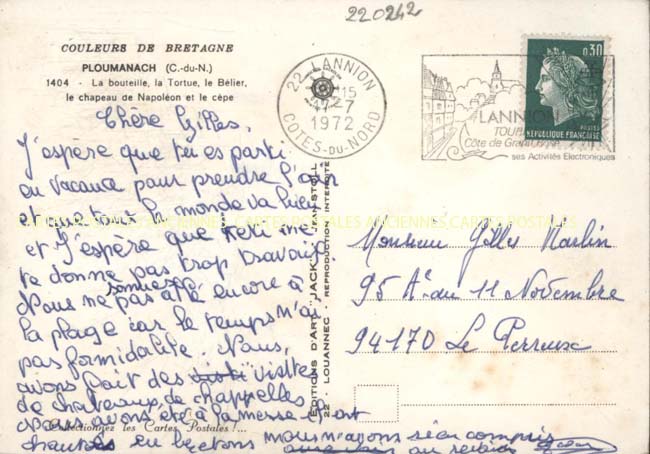 220242
COULEURS DE BRETAGNE
PLOUMANACH (C.-du-N.)
1404 - La bouteille, la Tortue, le Bélier,
le chapeau de Napoléon et le cèpe
22 LANNION
17-7
1972
COTES-DU-NORD
LANNION
Côte de Granit Rose
ses Activités Electroniques
0,30
POSTES
REPUBLIQUE FRANÇAISE
Chère Gilles,
J'espère que tu es parti
en vacance pour prendre l'air
et que tout le monde va bien
et J'espère que
te donne pas trop travail
Nous ne sommes pas été encore à
la plage car le temps n'ai
pas formidable. Nous,
avons fait des visites
de chateaux, de chappelles
nous avons été à la messe et ont
chantés en bretons nous n'avons rien compris
CARTES POSTALES ANCIENNES
EDITIONS D'ART "JACK" JEAN STOLL
22 - LOUANNEC - REPRODUCTION INTERDITE
Collectionnez les Cartes Postales !...
Monsieur Gilles
95 A° du 11 Novembre
94170 Le Perreux